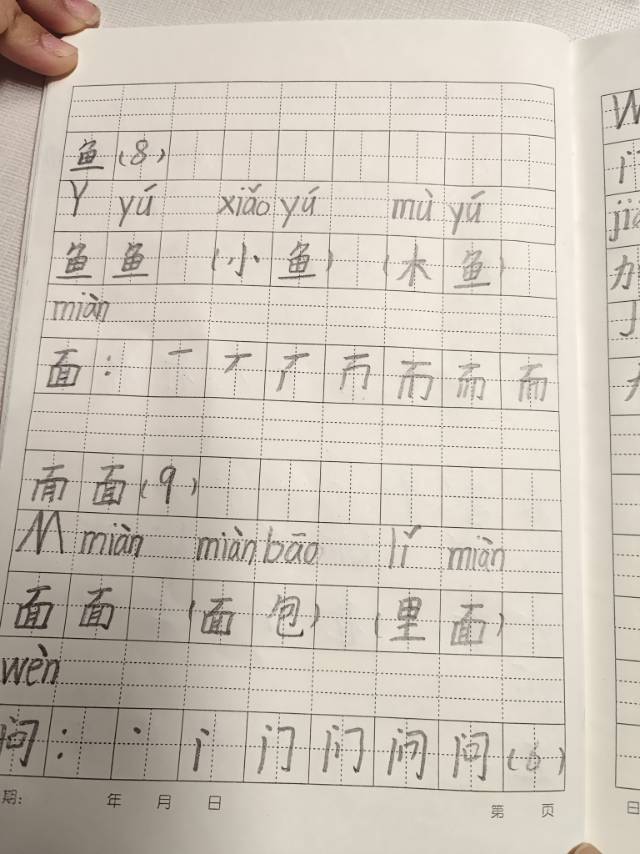 鱼(8)
Y yú xiǎo yú mù yú
鱼 鱼 (小 鱼) (木 鱼)
miàn
面: 一 丆
面(9)
M miàn miàn bāo lǐ miàn
面 面 (面 包) (里 面)
wèn
问: 丶 门 问 (6)
期: 年 月 日 第 页